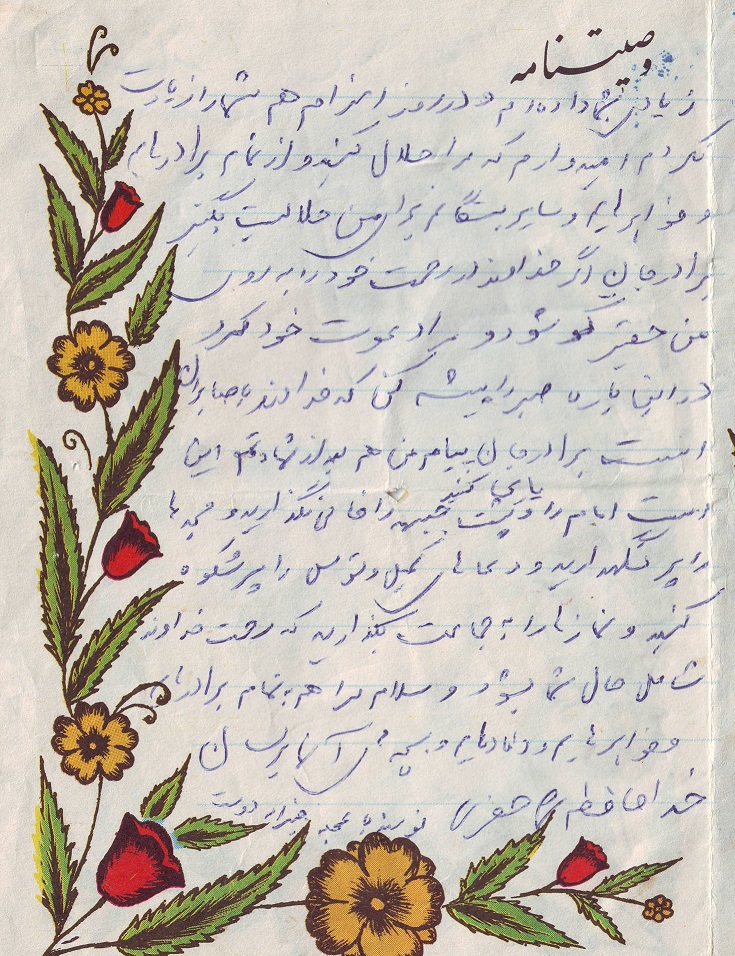 وصیتنامه
زیادی بشما داده‌ام و در روز اعزام هم شما را زیارت
نکردم امیدوارم که مرا حلال کنید و از تمام برادرهایم
و خواهرهایم و سایر بستگانم برای من حلالیت بگیر
برادر جان اگر خداوند در رحمت خود را به روی
من حقیر گشود و مرا دعوت خود کرد
در این باره صبر را پیشه کن که خداوند با صابران
است برادر جان پیام من هم بعد از شهادتم این
است امام را یاری کنید و پشت جبهه را خالی نگذارید و مسجدها
را پر نگهدارید و دعاهای کمیل و توسل را پرشکوه
کنید و نمازها را به جماعت بگذارید که رحمت خداوند
شامل حال شما بشود و سلام مرا هم به تمام برادرهایم
و خواهرهایم و دامادهایم و بچه های آنها برسان
خداحافظ نویسنده